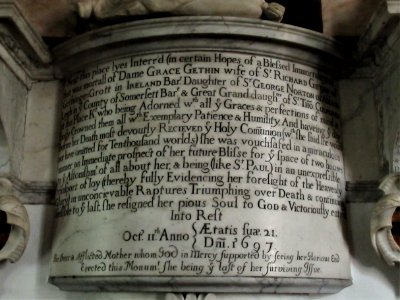 this place lyes Interr'd (in certain Hopes of a Blessed
was mortall of Dame GRACE GETHIN wife of Sr. RICHARD
Grott in IRELAND Bart. Daughter of Sr. GEORGE NORTON
County of Somersett Bart. & Great Granddaughter of Sr. Tho.
Place Kt. who being Adorned wth. all ye Graces & perfections of
Crowned them all wth. Exemplary Patience & Humility And
her Death most devoutly Receiv'd ye Holy Com̄union
have omitted for Ten thousand worlds) she was vouchsafed in a miraculous
an Im̄ediate prospect of her future Blisse for ye space of two
Astonishm't of all about her, & being (like St. PAUL) in an unexpressible
of Joy (thereby fully Evidencing her foresight of the Heavenly
in unconceivable Raptures Triumphing over Death & continued
to ye last, she resigned her pious Soul to GOD & Victoriously
Into Rest
Oct. 11th. Anno Ætatis suæ. 21.
Dm̄i. 1697.
Afflicted Mother whom God in Mercy supported by seeing her Glorious End
Erected this Monumt. she being ye last of her surviving Issue.